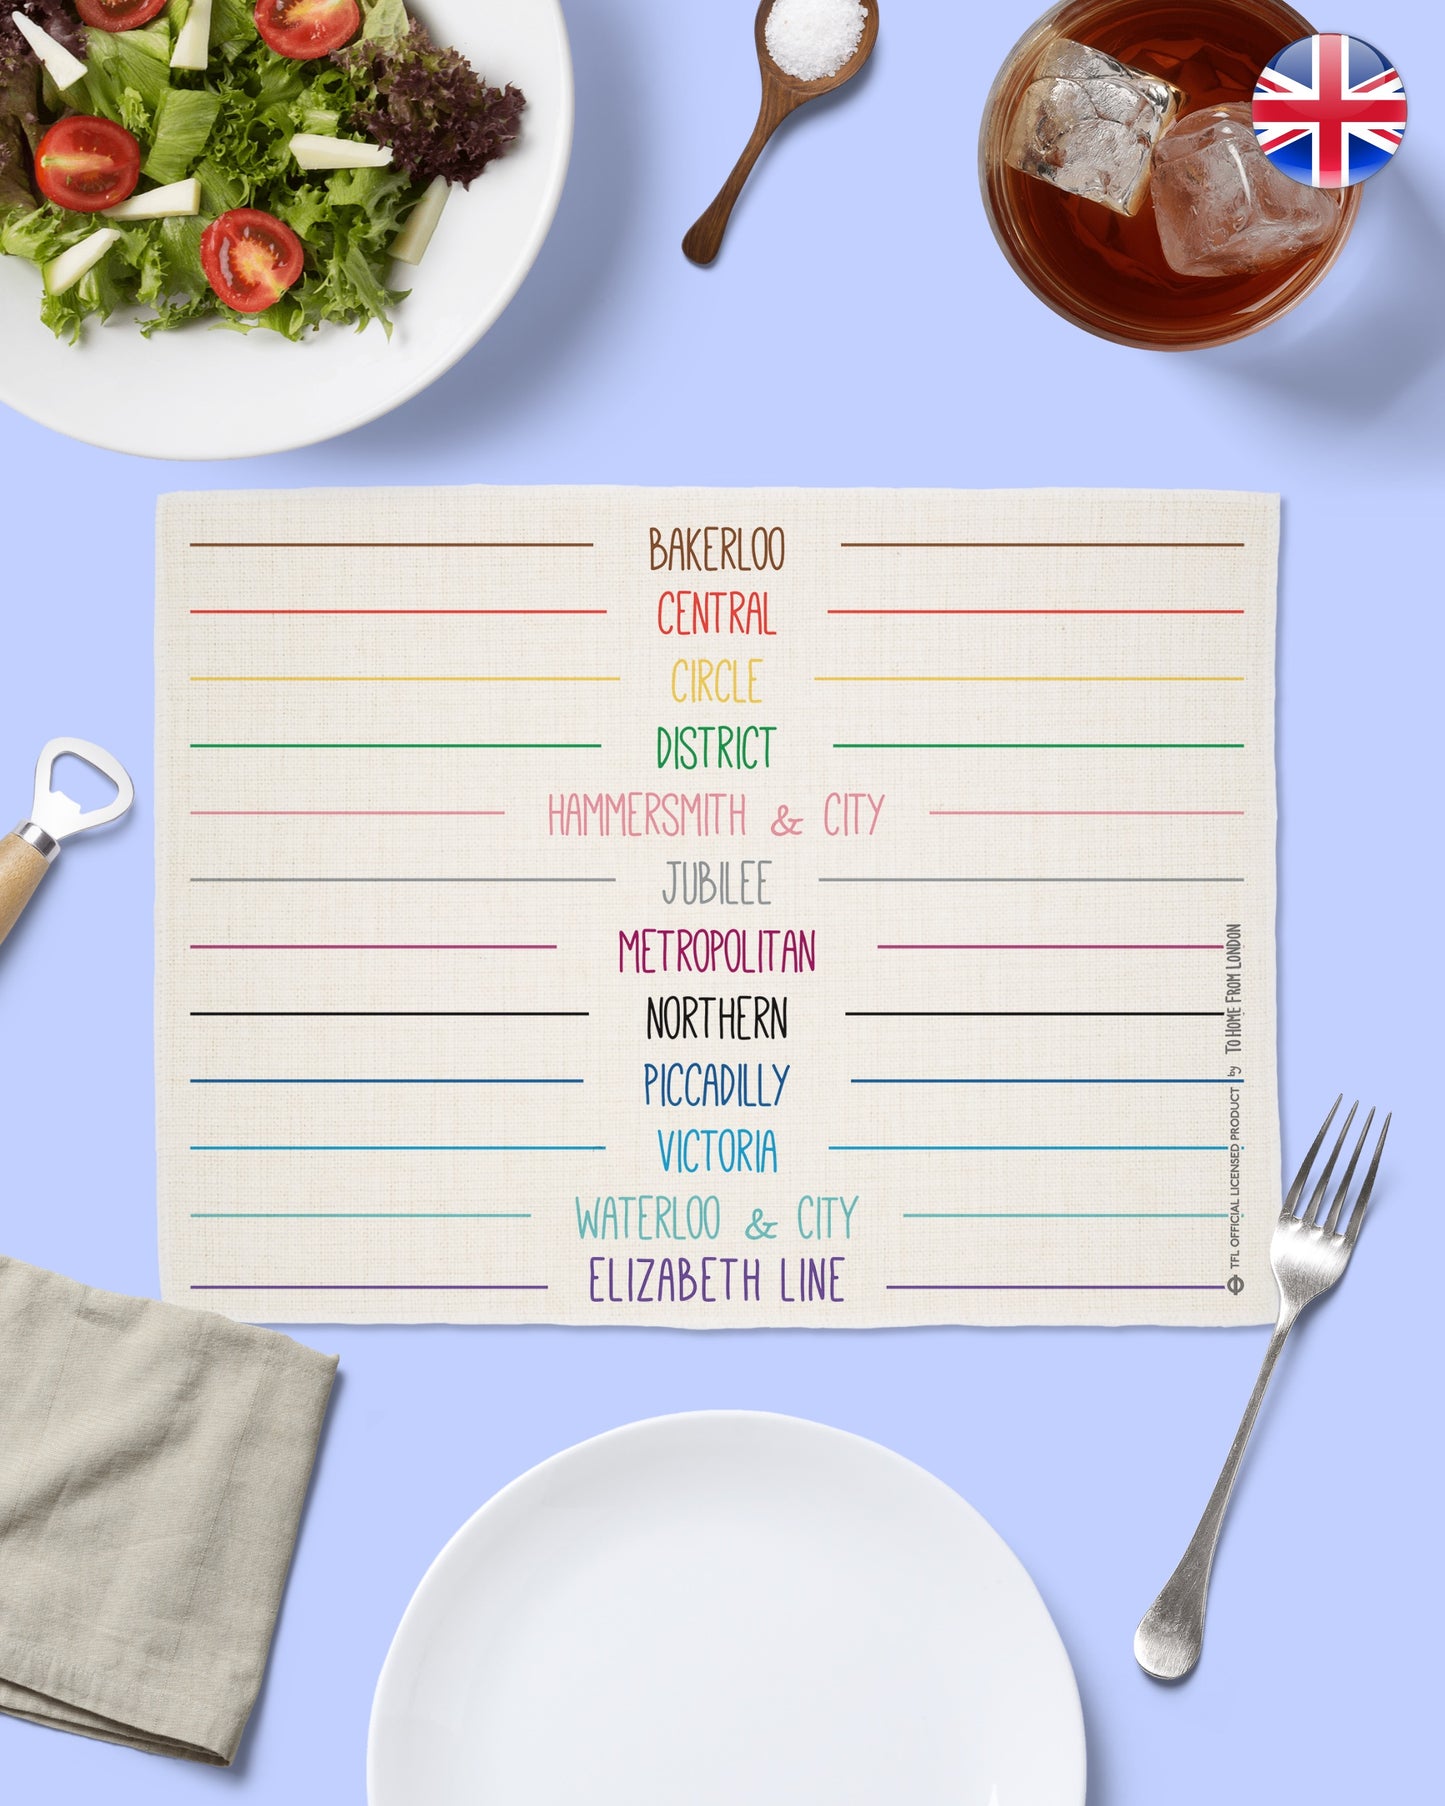 BAKERLOO
CENTRAL
CIRCLE
DISTRICT
HAMMERSMITH & CITY
JUBILEE
METROPOLITAN
NORTHERN
PICCADILLY
VICTORIA
WATERLOO & CITY
ELIZABETH LINE
TFL OFFICIAL LICENSED PRODUCT by TO HOME FROM LONDON